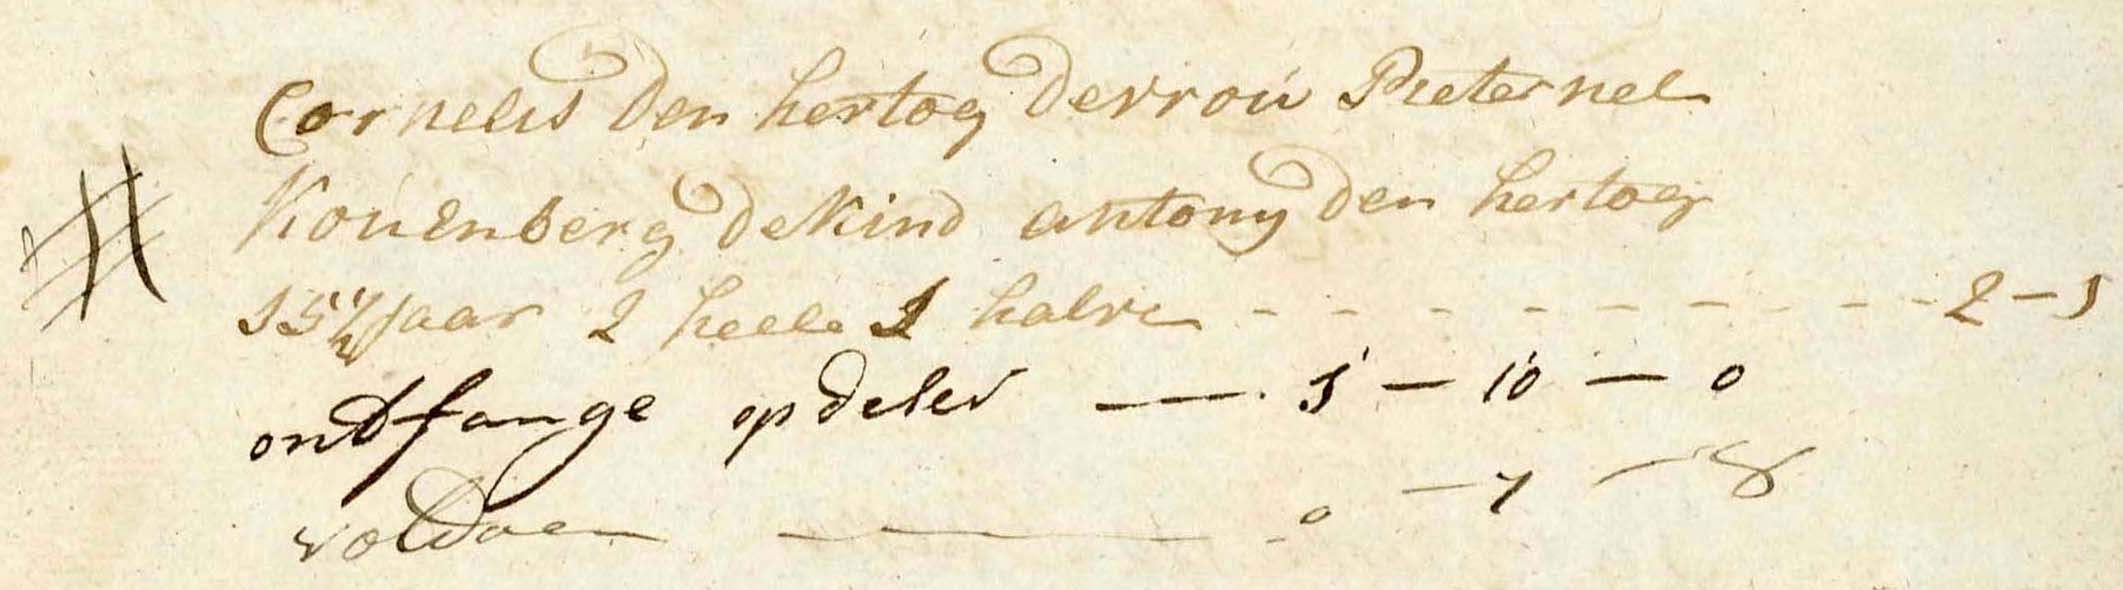 Cornelis den hertog de vrou Pieternel
Kouenberg de kind antony den hertog
15 1/2 Jaar 2 heele 1 halve - - - - - - - - 2 - 1
ontfange op deser — 1 - 10 - 0
voldaen — 0 - 7 - 8